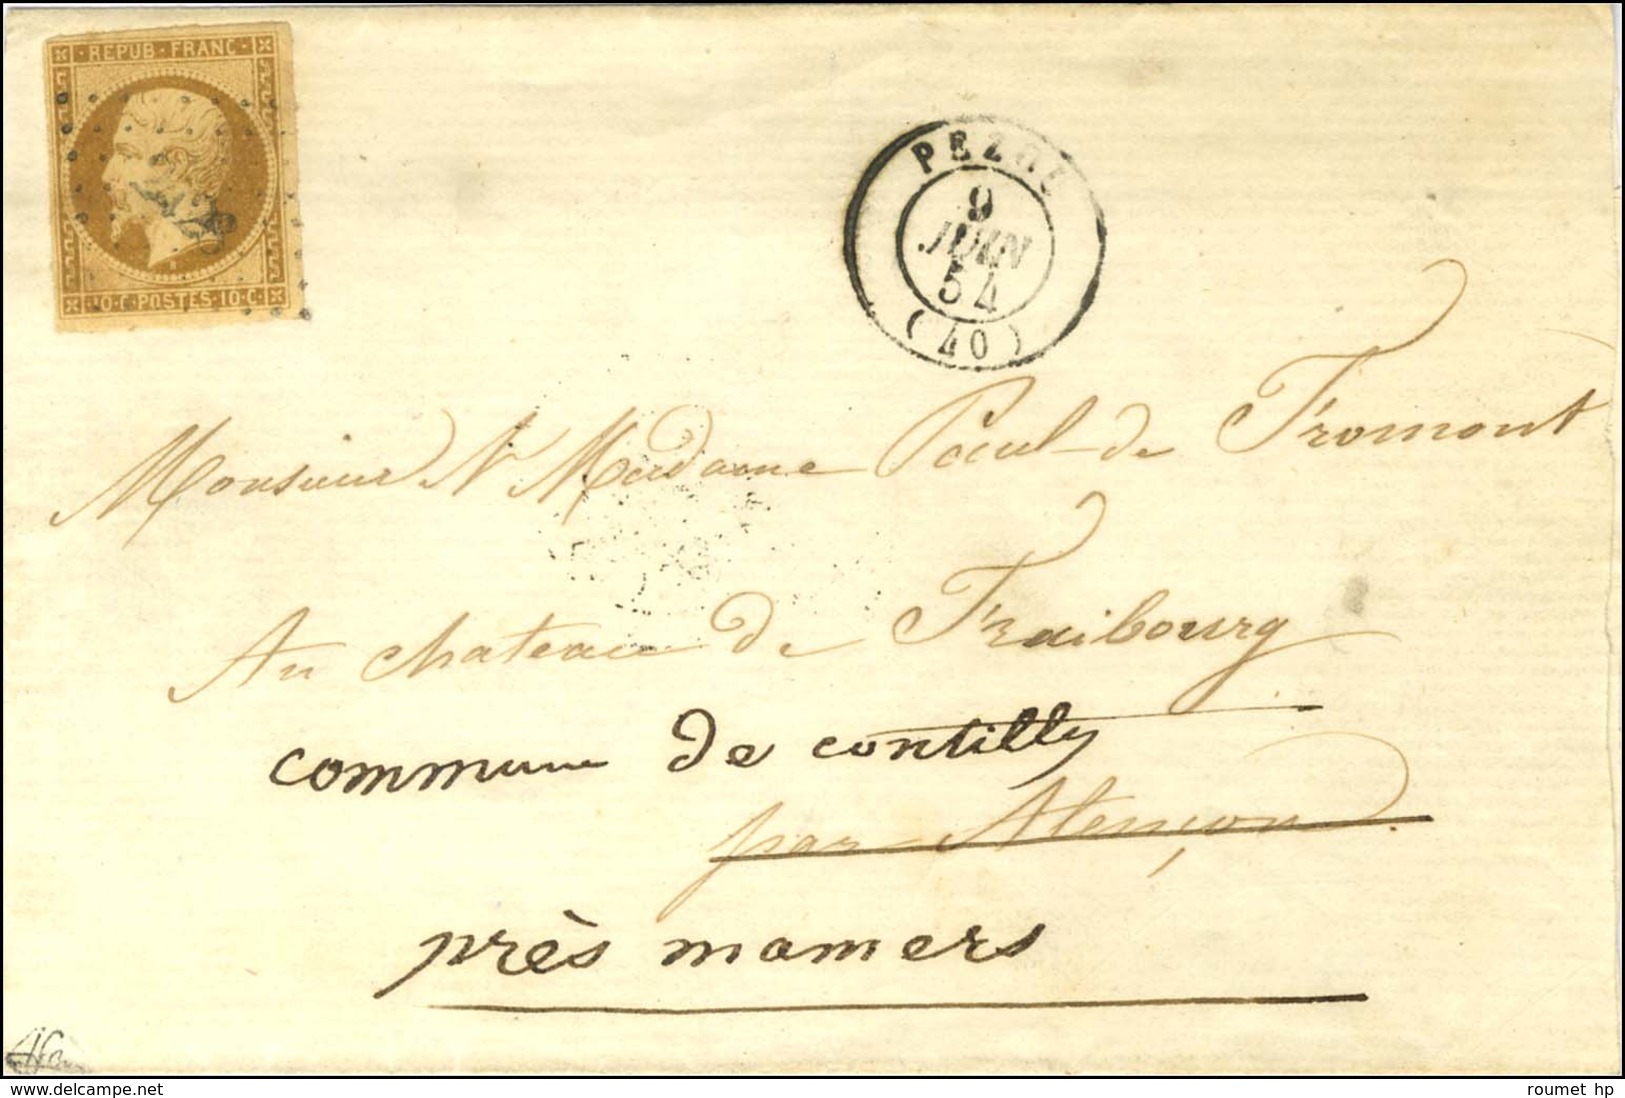 REPUB · FRANC
10·C·POSTES·10·C·
PEZOU
9
JUIN
54
(40)
Monsieur & Madame Paul de Fromont
Au chateau de Fraibourg
commune de contilly
par Alençon
près mamers
www.delcampe.net
roumet hp